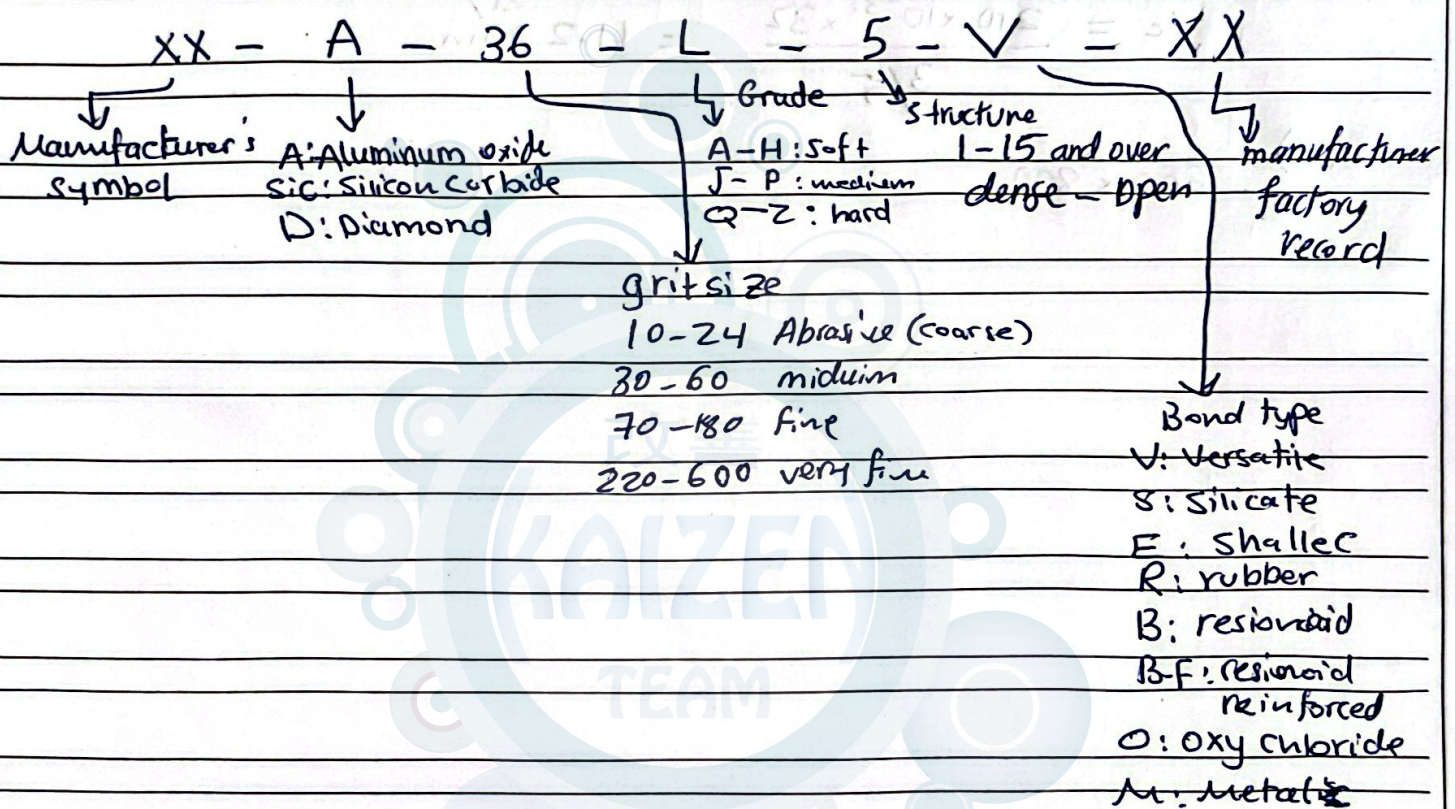 XX - A - 36 - L - 5 - V - XX
Manufacturer's
symbol
A: Aluminum oxide
SiC: Silicon Carbide
D: Diamond
Grade
A-H: Soft
J-P: medium
Q-Z: hard
structure
1-15 and over
dense - open
manufacturer
factory
record
grit size
10-24 Abrasive (coarse)
30-60 miduim
70-180 fine
220-600 very fine
Bond type
V: Versatile
S: Silicate
E: Shallec
R: rubber
B: resionoid
B-F: resionoid
reinforced
O: oxy chloride
M: Metalic
改善
KAIZEN
TEAM